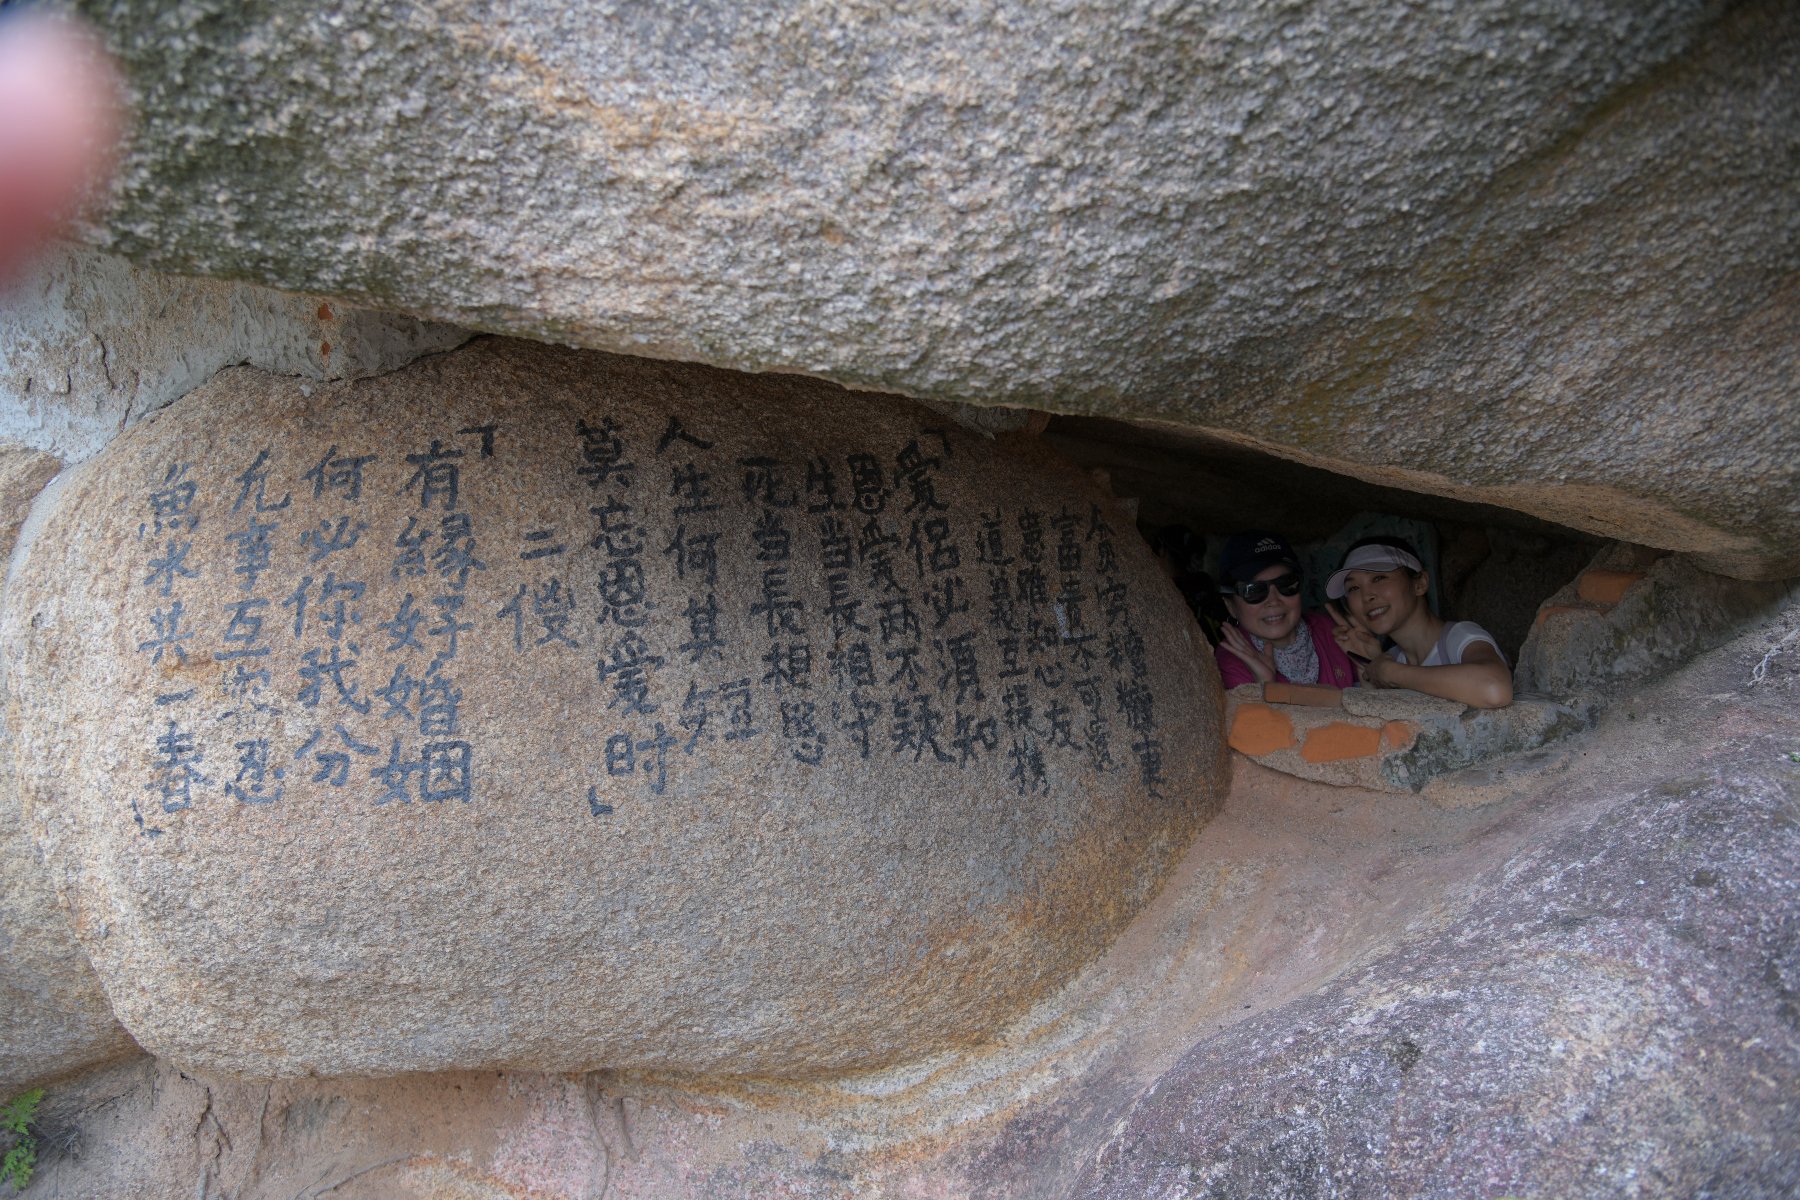 貧穷糟糠妻
富貴不可遗
患难知心友
道義互提携
「愛侣必須知
恩愛两不疑
生当長相守
死当長相思
人生何其短
莫忘恩爱时」
二
「有緣好婚姻
何必你我分
凡事互忍
魚水共一春」
adidas